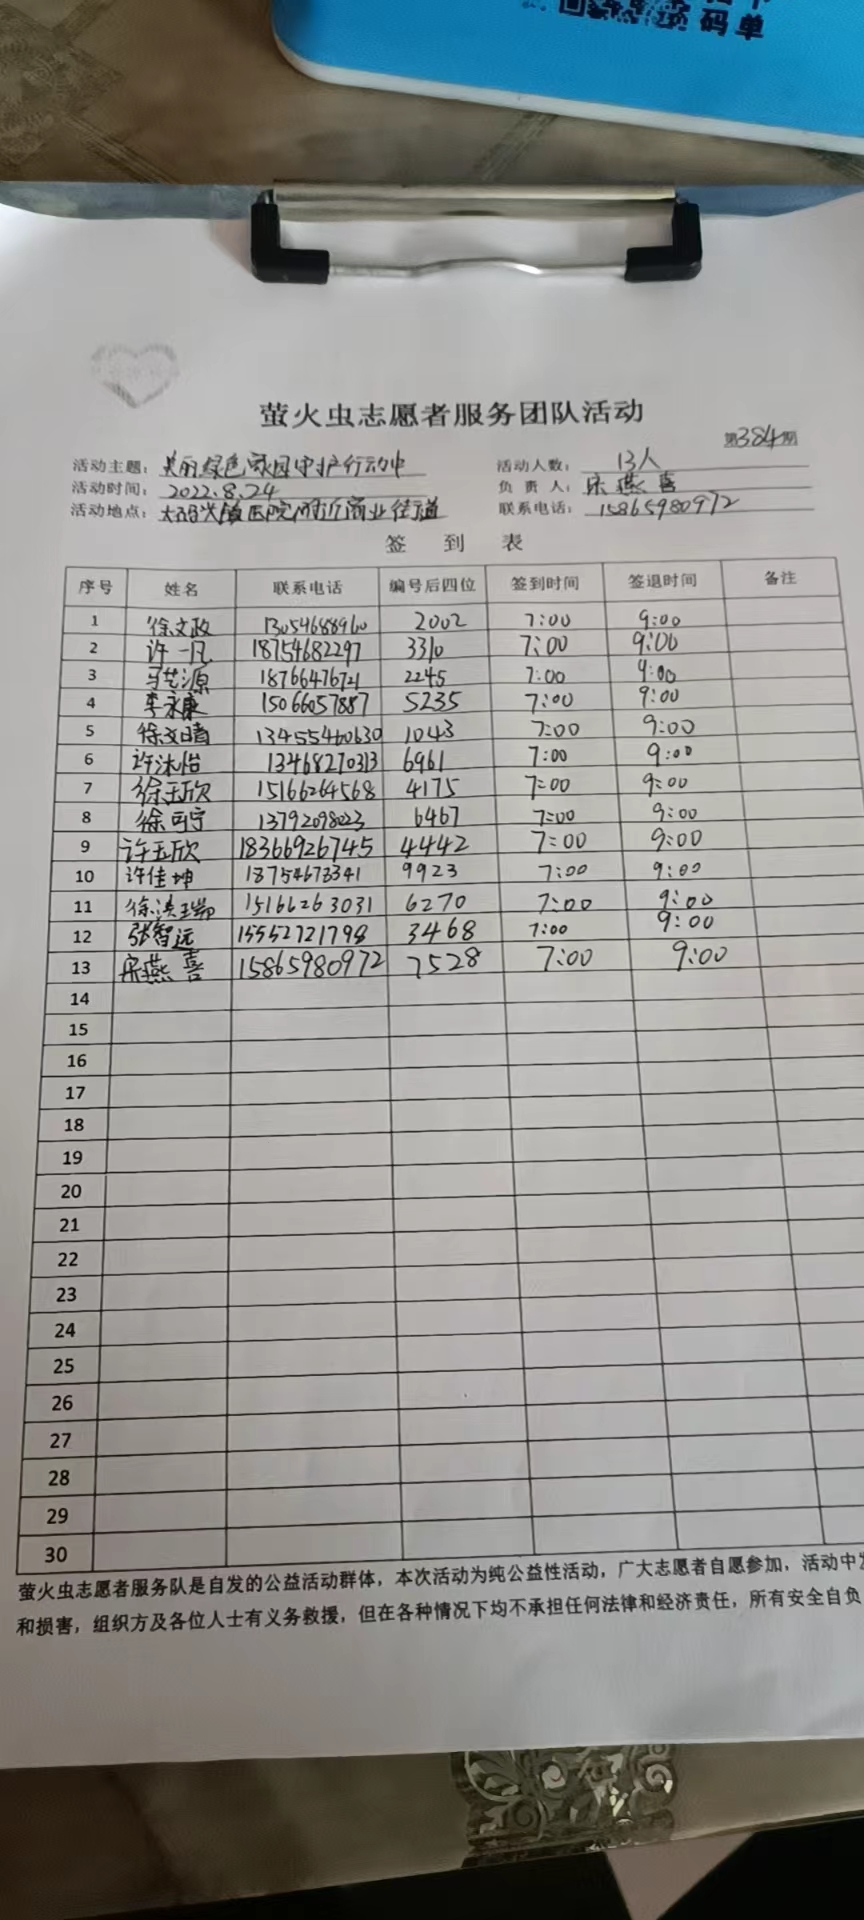 码单
萤火虫志愿者服务团队活动
第384期
活动主题：美丽绿色家园守护行动中 活动人数：13人
活动时间：2022.8.24 负责人：宋燕喜
活动地点：大码头镇医院附近商业街道 联系电话：15865980972
签到表
序号 姓名 联系电话 编号后四位 签到时间 签退时间 备注
1 徐文政 13054688960 2002 7:00 9:00
2 许一凡 18754682297 3310 7:00 9:00
3 马艺源 18766476721 2245 7:00 9:00
4 李永康 15066057887 5235 7:00 9:00
5 徐文晴 13455460630 1043 7:00 9:00
6 许沐怡 13468270313 6961 7:00 9:00
7 徐玉欣 15166264568 4175 7:00 9:00
8 徐可宁 13792098023 6467 7:00 9:00
9 许玉欣 18366926745 4442 7:00 9:00
10 许佳坤 18754673341 9923 7:00 9:00
11 徐洪瑞 15166263031 6270 7:00 9:00
12 张智远 15552721798 3468 7:00 9:00
13 宋燕喜 15865980972 7528 7:00 9:00
14
15
16
17
18
19
20
21
22
23
24
25
26
27
28
29
30
萤火虫志愿者服务队是自发的公益活动群体，本次活动为纯公益性活动，广大志愿者自愿参加，活动中
和损害，组织方及各位人士有义务救援，但在各种情况下均不承担任何法律和经济责任，所有安全自负